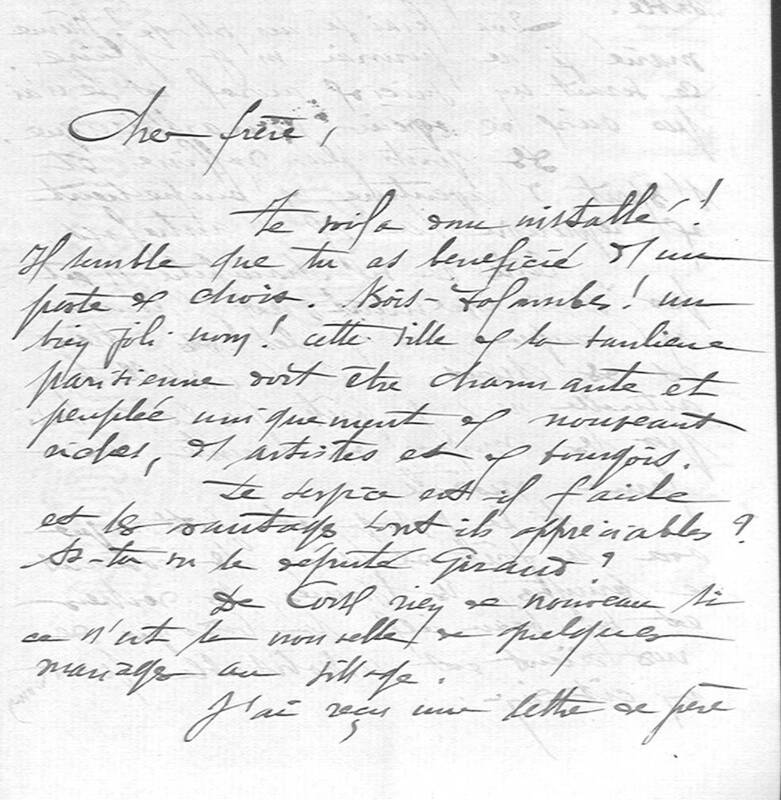 Cher frère,
Te voila donc installé !
Il semble que tu as beneficié d'un
poste de choix. Bois-Colombes ! un
bien joli nom ! cette ville de la banlieue
parisienne doit être charmante et
peuplée uniquement de nouveaux
riches, d'artistes et de bourgois.
Le service est-il facile
et les avantages sont ils appréciables ?
As-tu vu le député Giraud ?
De Corse rien de nouveau si
ce n'est la nouvelle de quelques
mariages au village.
J'ai reçu une lettre de père